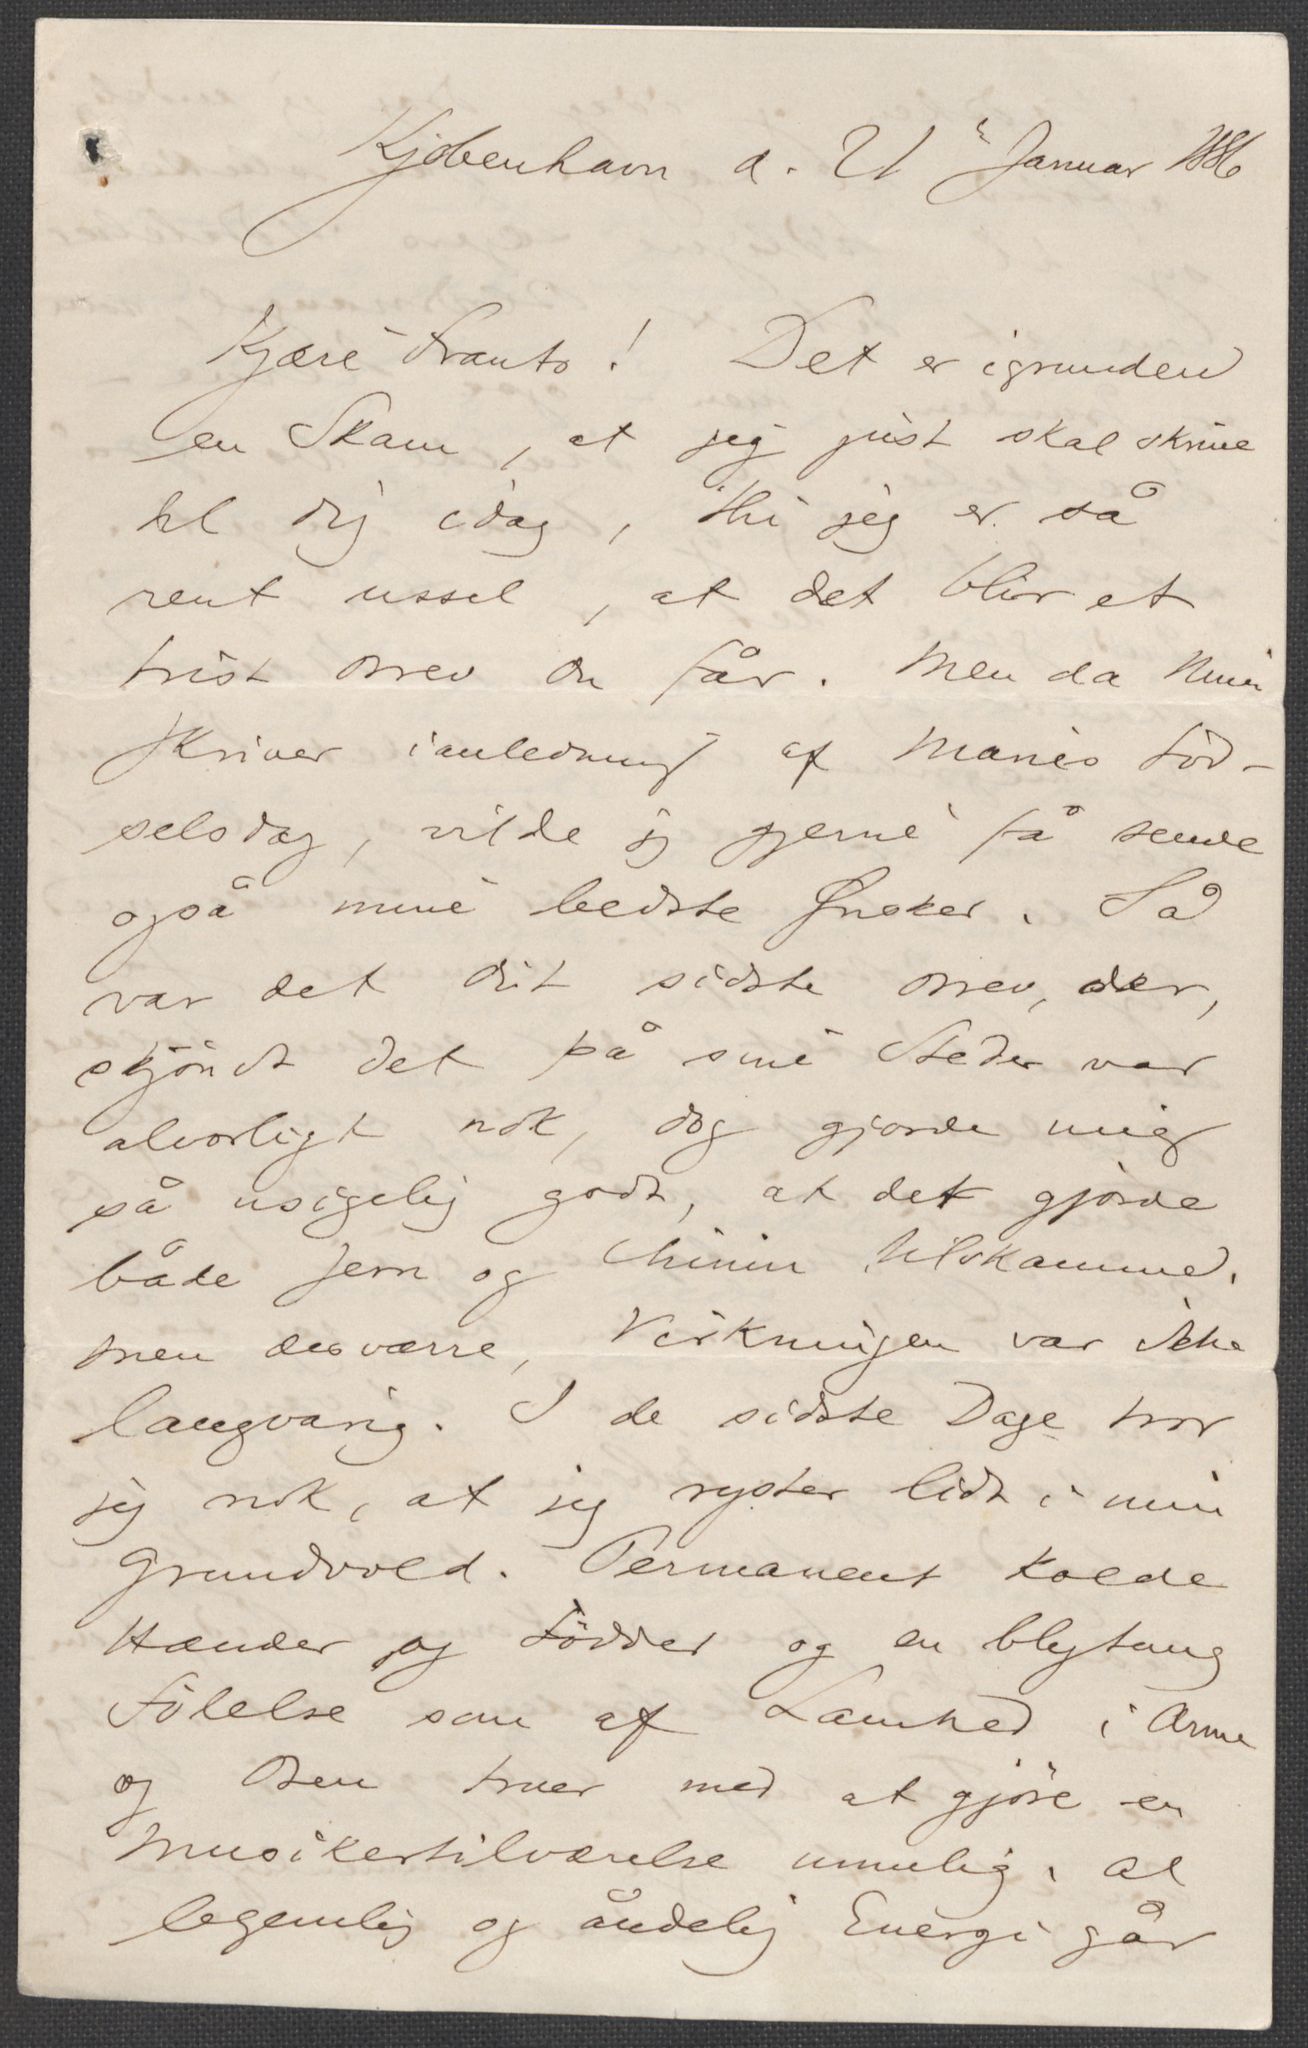 Kjøbenhavn d. 21 Januar 1886
Kjære Frants! Det er igrunden
en Skam, at jeg just skal skrive
til dig idag, thi jeg er så
rent ussel, at det blir et
trist Brev du får. Men da Nina
skriver ianledning af Maries Föd-
selsdag, vilde jeg gjerne få sende
også mine bedste Ønsker. Så
var det dit sidste Brev, der,
skjöndt det på sine Steder var
alvorligt nok, dog gjorde mig
så usigelig godt, at det gjorde
både Jern og Chinin tilskamme.
Men desværre, Virkningen var ikke
langvarig. I de sidste Dage tror
jeg nok, at jeg ryster lidt i min
Grundvold. Permanent kolde
Hænder og Födder og en blytung
Fölelse som af Lamhed i Arme
og Ben truer med at gjöre en
Musikertilværelse umulig. Al
legemlig og åndelig Energi går